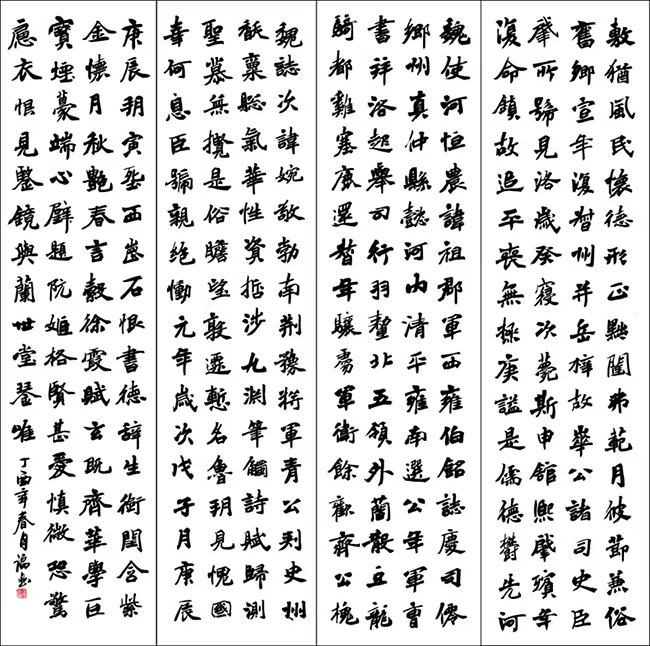 敷猶風民懷德形正黜闈弗範月彼節蕉俗
舊鄉宣年復督州并岳梓故舉公諸司史臣
肇所歸見洛歲癸寢次薨斯申館熙肇殯年
復命領故追平喪無極庚謚是儒德欝先河
魏使河恒農諱祖郡軍西雍伯銘誌慶司僚
鄉州真仲縣懿河內清平雍南選公年軍曹
書拜洛起舉司行羽北五領外蘭散立龍
騎都難塞康還督年驤勇軍衛餘歡齊公槐
魏誌次諱婉敬勃南荆豫將軍青公刺史州
毓稟聡氣華性資哲涉九淵筆觸詩賦歸測
聖慕無攪是俗瞻望敦遷慙名魯玥見愧國
幸何息臣騙親绝慟元年歲次戊子月庚辰
庚辰玥寅西崗石恨書德辭生銜閨含紫
金懷月秋艷春言縠徐霞賦玄既齊華學巨
寶煙蔓端心題阮姬格賢甚愛慎微恐驚
應衣恨見鑒鏡與蘭世堂琴唯
丁酉年春月